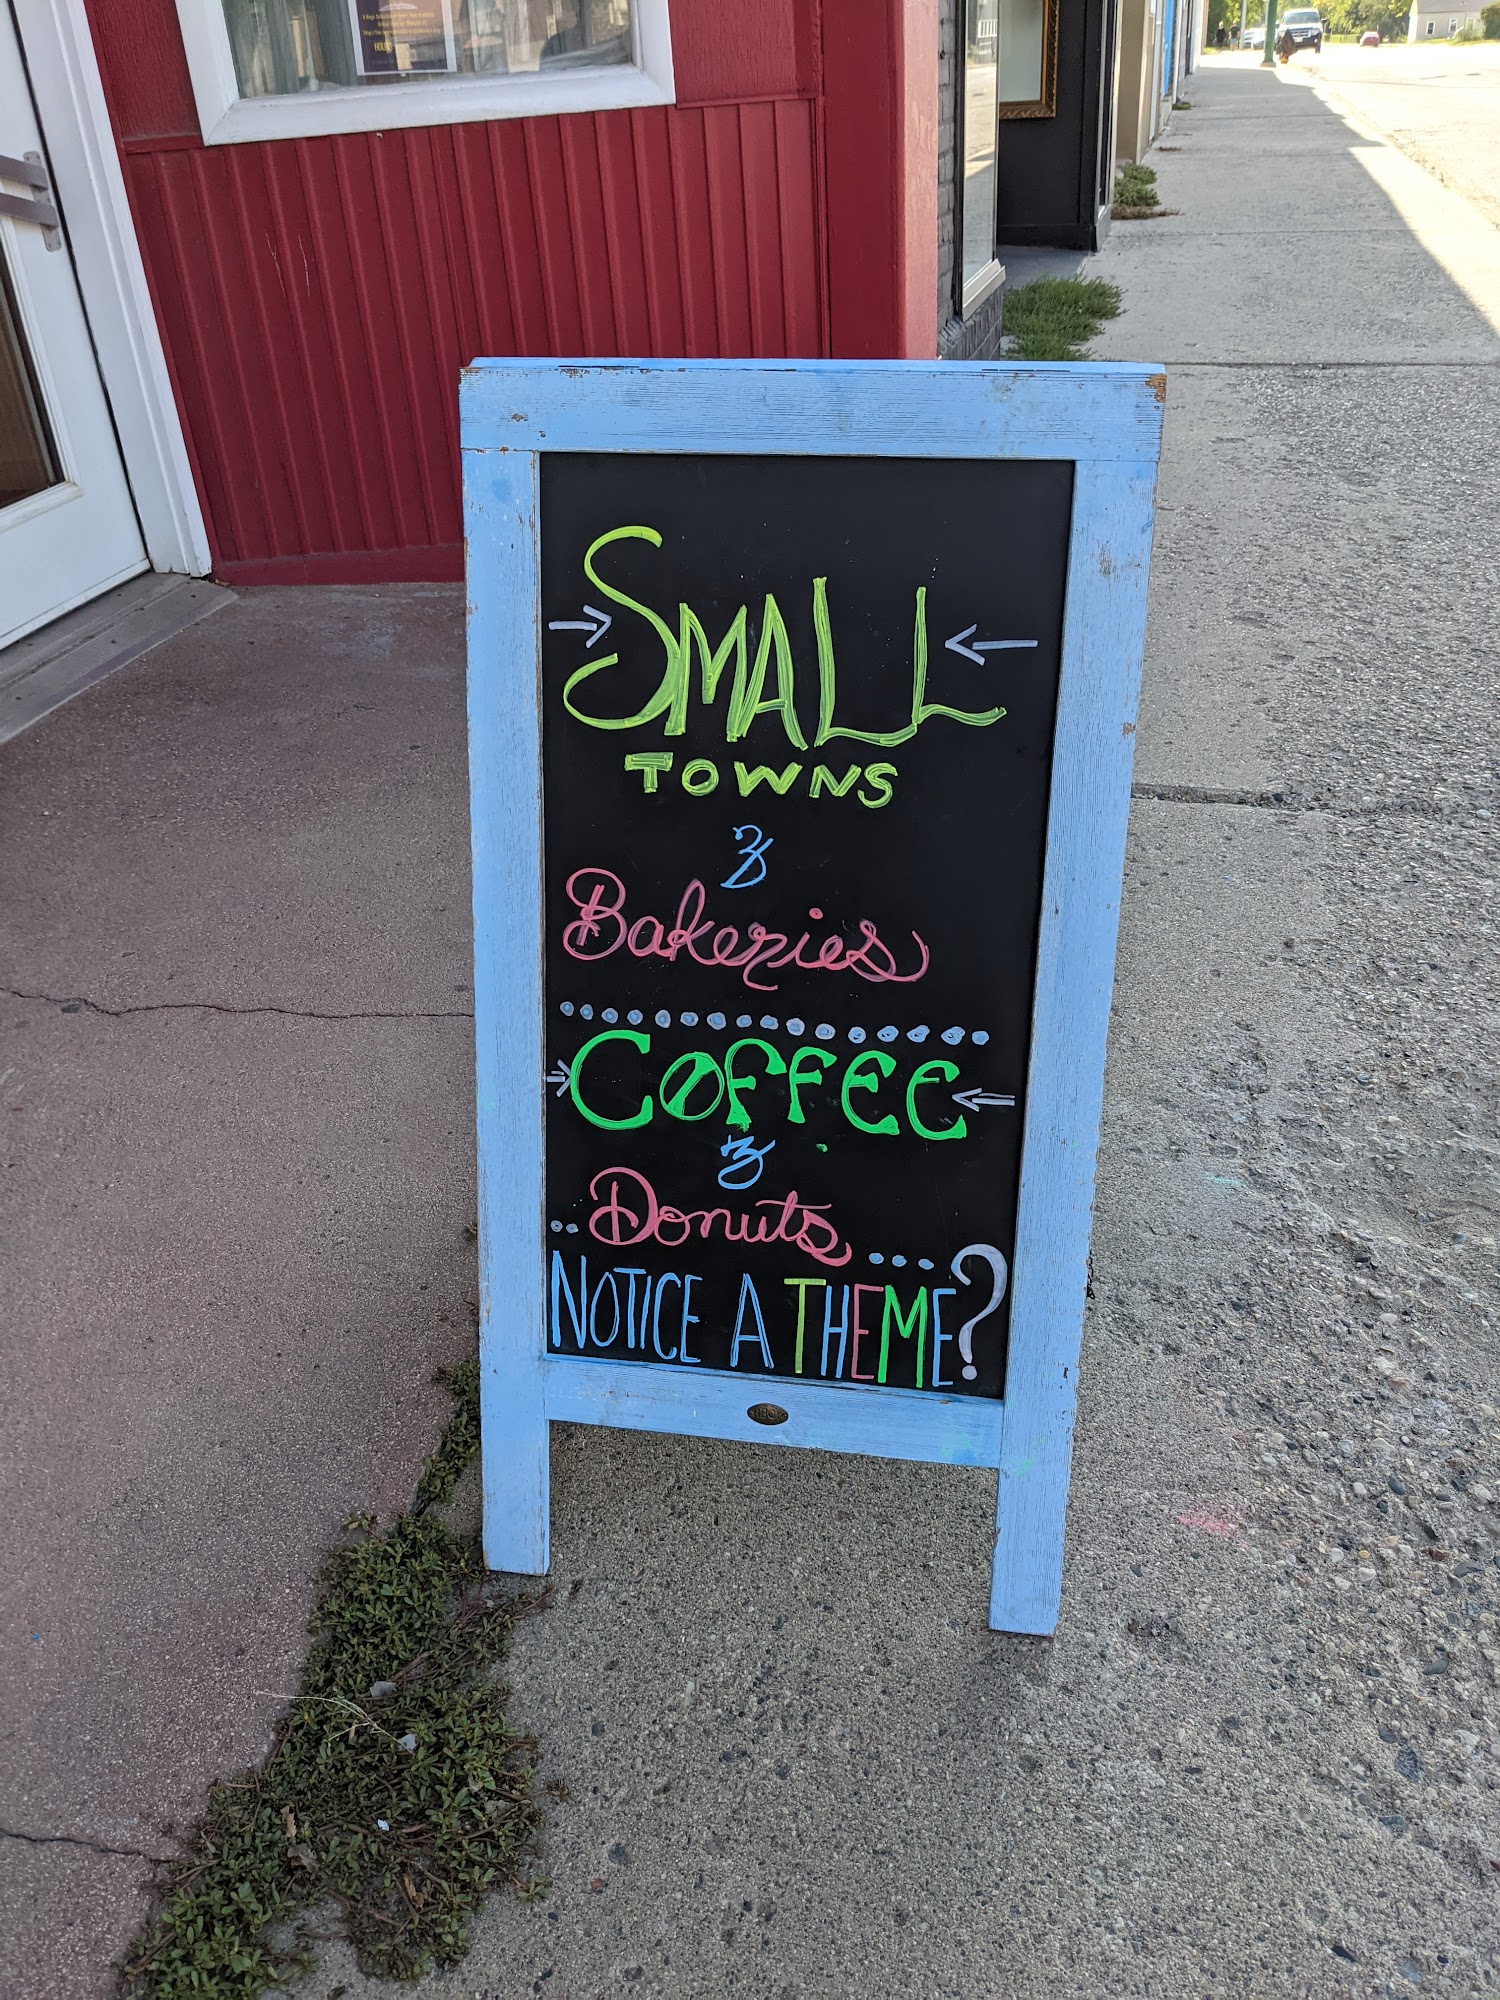 HOURS
SMALL
TOWNS
&
Bakeries
COFFEE
&
Donuts
NOTICE A THEME?